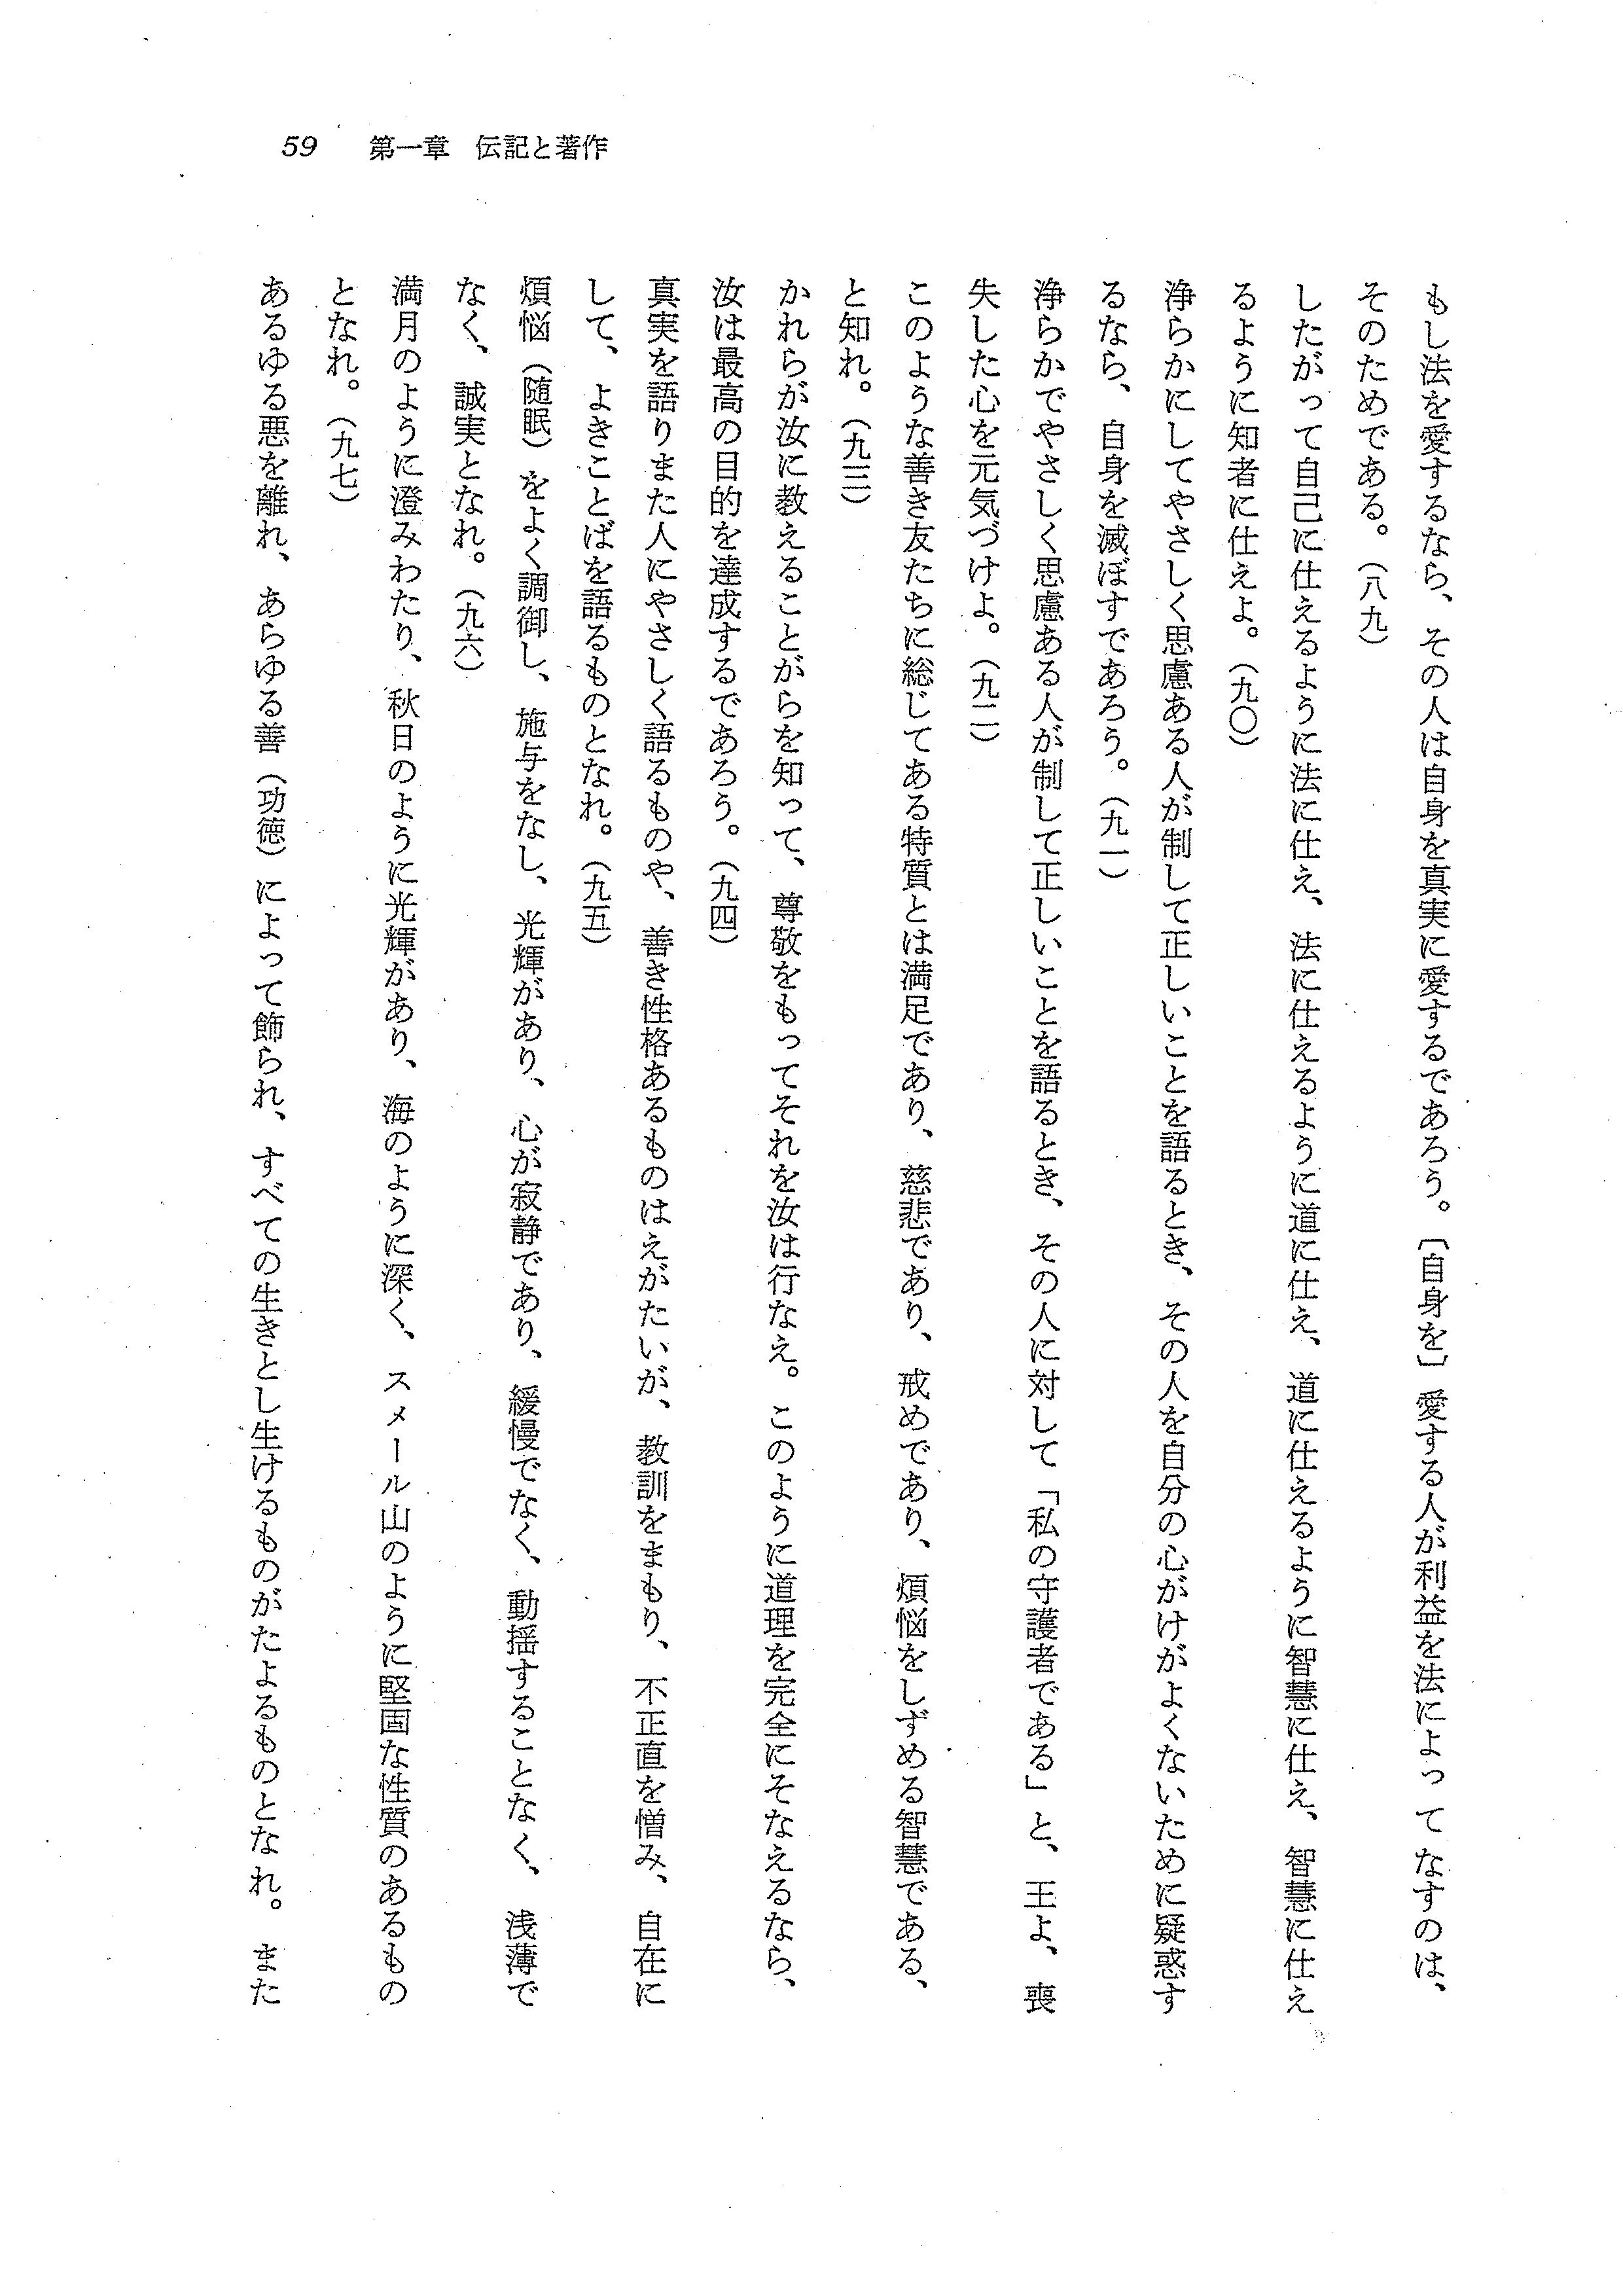 59 第一章 伝記と著作
もし法を愛するなら、その人は自身を真実に愛するであろう。〔自身を〕愛する人が利益を法によってなすのは、
そのためである。（八九）
したがって自己に仕えるように法に仕え、法に仕えるように道に仕え、道に仕えるように智慧に仕え、智慧に仕え
るように知者に仕えよ。（九〇）
浄らかにしてやさしく思慮ある人が制して正しいことを語るとき、その人を自分の心がけがよくないために疑惑す
るなら、自身を滅ぼすであろう。（九一）
浄らかでやさしく思慮ある人が制して正しいことを語るとき、その人に対して「私の守護者である」と、王よ、喪
失した心を元気づけよ。（九二）
このような善き友たちに総じてある特質とは満足であり、慈悲であり、戒めであり、煩悩をしずめる智慧である、
と知れ。（九三）
かれらが汝に教えることがらを知って、尊敬をもってそれを汝は行なえ。このように道理を完全にそなえるなら、
汝は最高の目的を達成するであろう。（九四）
真実を語りまた人にやさしく語るものや、善き性格あるものはえがたいが、教訓をまもり、不正直を憎み、自在に
して、よきことばを語るものとなれ。（九五）
煩悩（随眠）をよく調御し、施与をなし、光輝があり、心が寂静であり、緩慢でなく、動揺することなく、浅薄で
なく、誠実となれ。（九六）
満月のように澄みわたり、秋日のように光輝があり、海のように深く、スメール山のように堅固な性質のあるもの
となれ。（九七）
あるゆる悪を離れ、あらゆる善（功徳）によって飾られ、すべての生きとし生けるものがたよるものとなれ。また